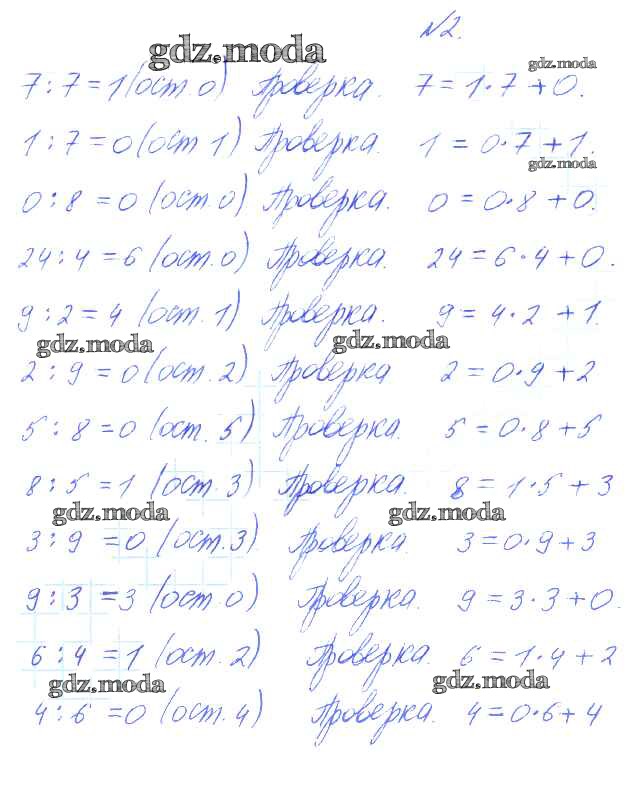 №2.
gdz.moda
gdz.moda
7 : 7 = 1 (ост. 0) Проверка. 7 = 1 · 7 + 0.
1 : 7 = 0 (ост 1) Проверка. 1 = 0 · 7 + 1.
gdz.moda
0 : 8 = 0 (ост. 0) Проверка. 0 = 0 · 8 + 0.
24 : 4 = 6 (ост. 0) Проверка. 24 = 6 · 4 + 0.
9 : 2 = 4 (ост. 1) Проверка. 9 = 4 · 2 + 1.
gdz.moda gdz.moda
2 : 9 = 0 (ост. 2) Проверка 2 = 0 · 9 + 2
5 : 8 = 0 (ост. 5) Проверка. 5 = 0 · 8 + 5
8 : 5 = 1 (ост. 3) Проверка. 8 = 1 · 5 + 3
gdz.moda gdz.moda
3 : 9 = 0 (ост. 3) Проверка. 3 = 0 · 9 + 3
9 : 3 = 3 (ост. 0) Проверка. 9 = 3 · 3 + 0.
6 : 4 = 1 (ост. 2) Проверка. 6 = 1 · 4 + 2
gdz.moda gdz.moda
4 : 6 = 0 (ост. 4) Проверка. 4 = 0 · 6 + 4